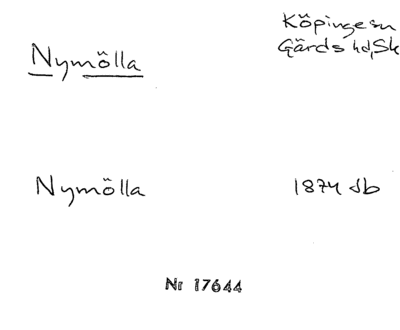 Nymölla
Köpinge sn
Gärds hd, Sk
Nymölla
1874 Jb
Nr 17644